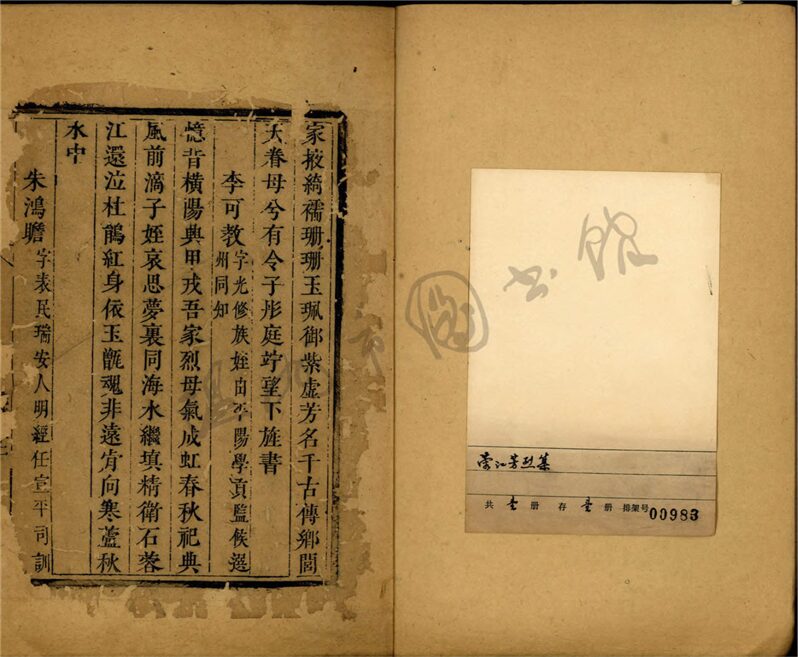 家掖綺襦珊珊玉珮御紫虛芳名千古傳鄉閭
大眷母兮有令子彤庭竚望下旌書
李可教字光修族姪由平陽學貢監候選州同知
憶昔橫陽典甲戎吾家烈母氣成虹春秋祀典
風前滴子姪哀思夢裏同海水繼填精衛石蓉
江還泣杜鵑紅身依玉甑魂非遠肯向寒蘆秋
水中
朱鴻瞻字表民瑞安人明經任宣平司訓
圖書館
芳烈集
共 册 存 册 排架号 00983